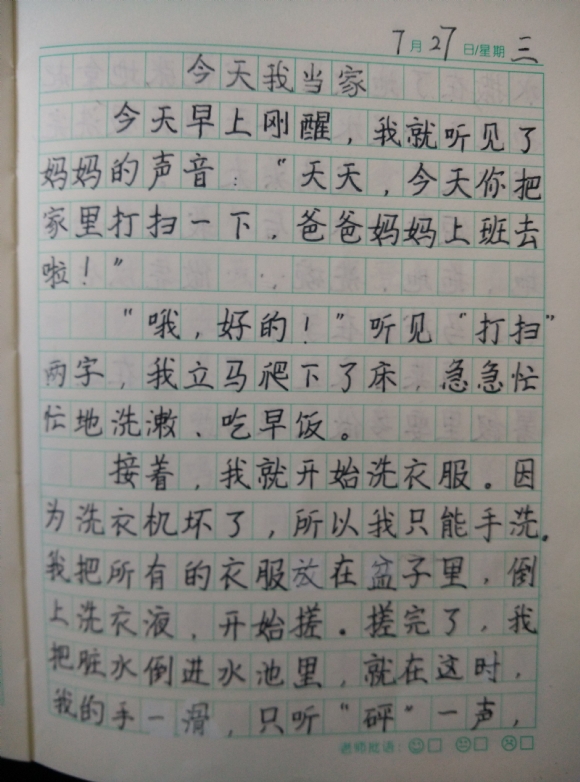 7月27日/星期三
今天我当家
今天早上刚醒，我就听见了
妈妈的声音："天天，今天你把
家里打扫一下，爸爸妈妈上班去
啦！"
"哦，好的！"听见"打扫"
两字，我立马爬下了床，急急忙
忙地洗漱、吃早饭。
接着，我就开始洗衣服。因
为洗衣机坏了，所以我只能手洗。
我把所有的衣服放在盆子里，倒
上洗衣液，开始搓。搓完了，我
把脏水倒进水池里，就在这时，
我的手一滑，只听"砰"一声，
老师批语：